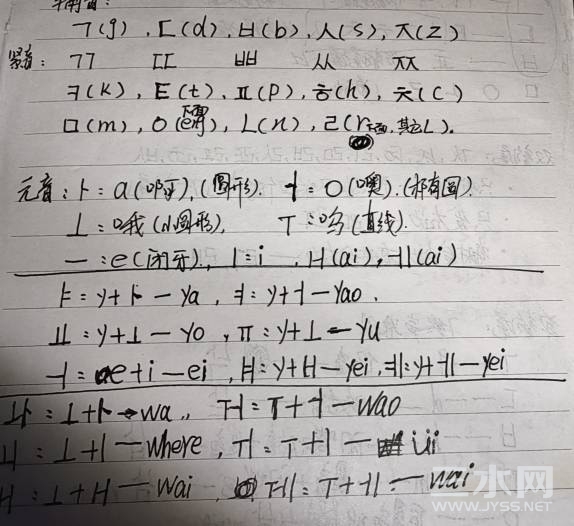 ㄱ(g), ㄷ(d), ㅂ(b), ㅅ(s), ㅈ(z)
紧音: ㄲ ㄸ ㅃ ㅆ ㅉ
ㅋ(k), ㅌ(t), ㅍ(p), ㅎ(h), ㅊ(c)
ㅁ(m), ㅇ, ㄴ(n), ㄹ(r, 其它L).
元音: ㅏ: a, (圆形). ㅓ: O(噢).(稍有圆)
ㅗ: 哦(小圆形), ㅜ: 呜(直线).
ㅡ: e(闭牙), ㅣ: i, ㅐ(ai), ㅔ(ai)
ㅑ: y+ㅏ— ya, ㅕ: y+ㅓ— yao.
ㅛ: y+ㅗ— yo, ㅠ: y+ㅗ— yu
ㅢ: e+i — ei, ㅒ: y+ㅐ— yei, ㅖ: y+ㅔ— yei
ㅘ: ㅗ+ㅏ→wa, ㅝ: ㅜ+ㅓ—wao
ㅚ: ㅗ+ㅣ—where, ㅟ: ㅜ+ㅣ—
ㅙ: ㅗ+ㅐ— wai, ㅞ: ㅜ+ㅔ— wai
WWW.JYSS.NET